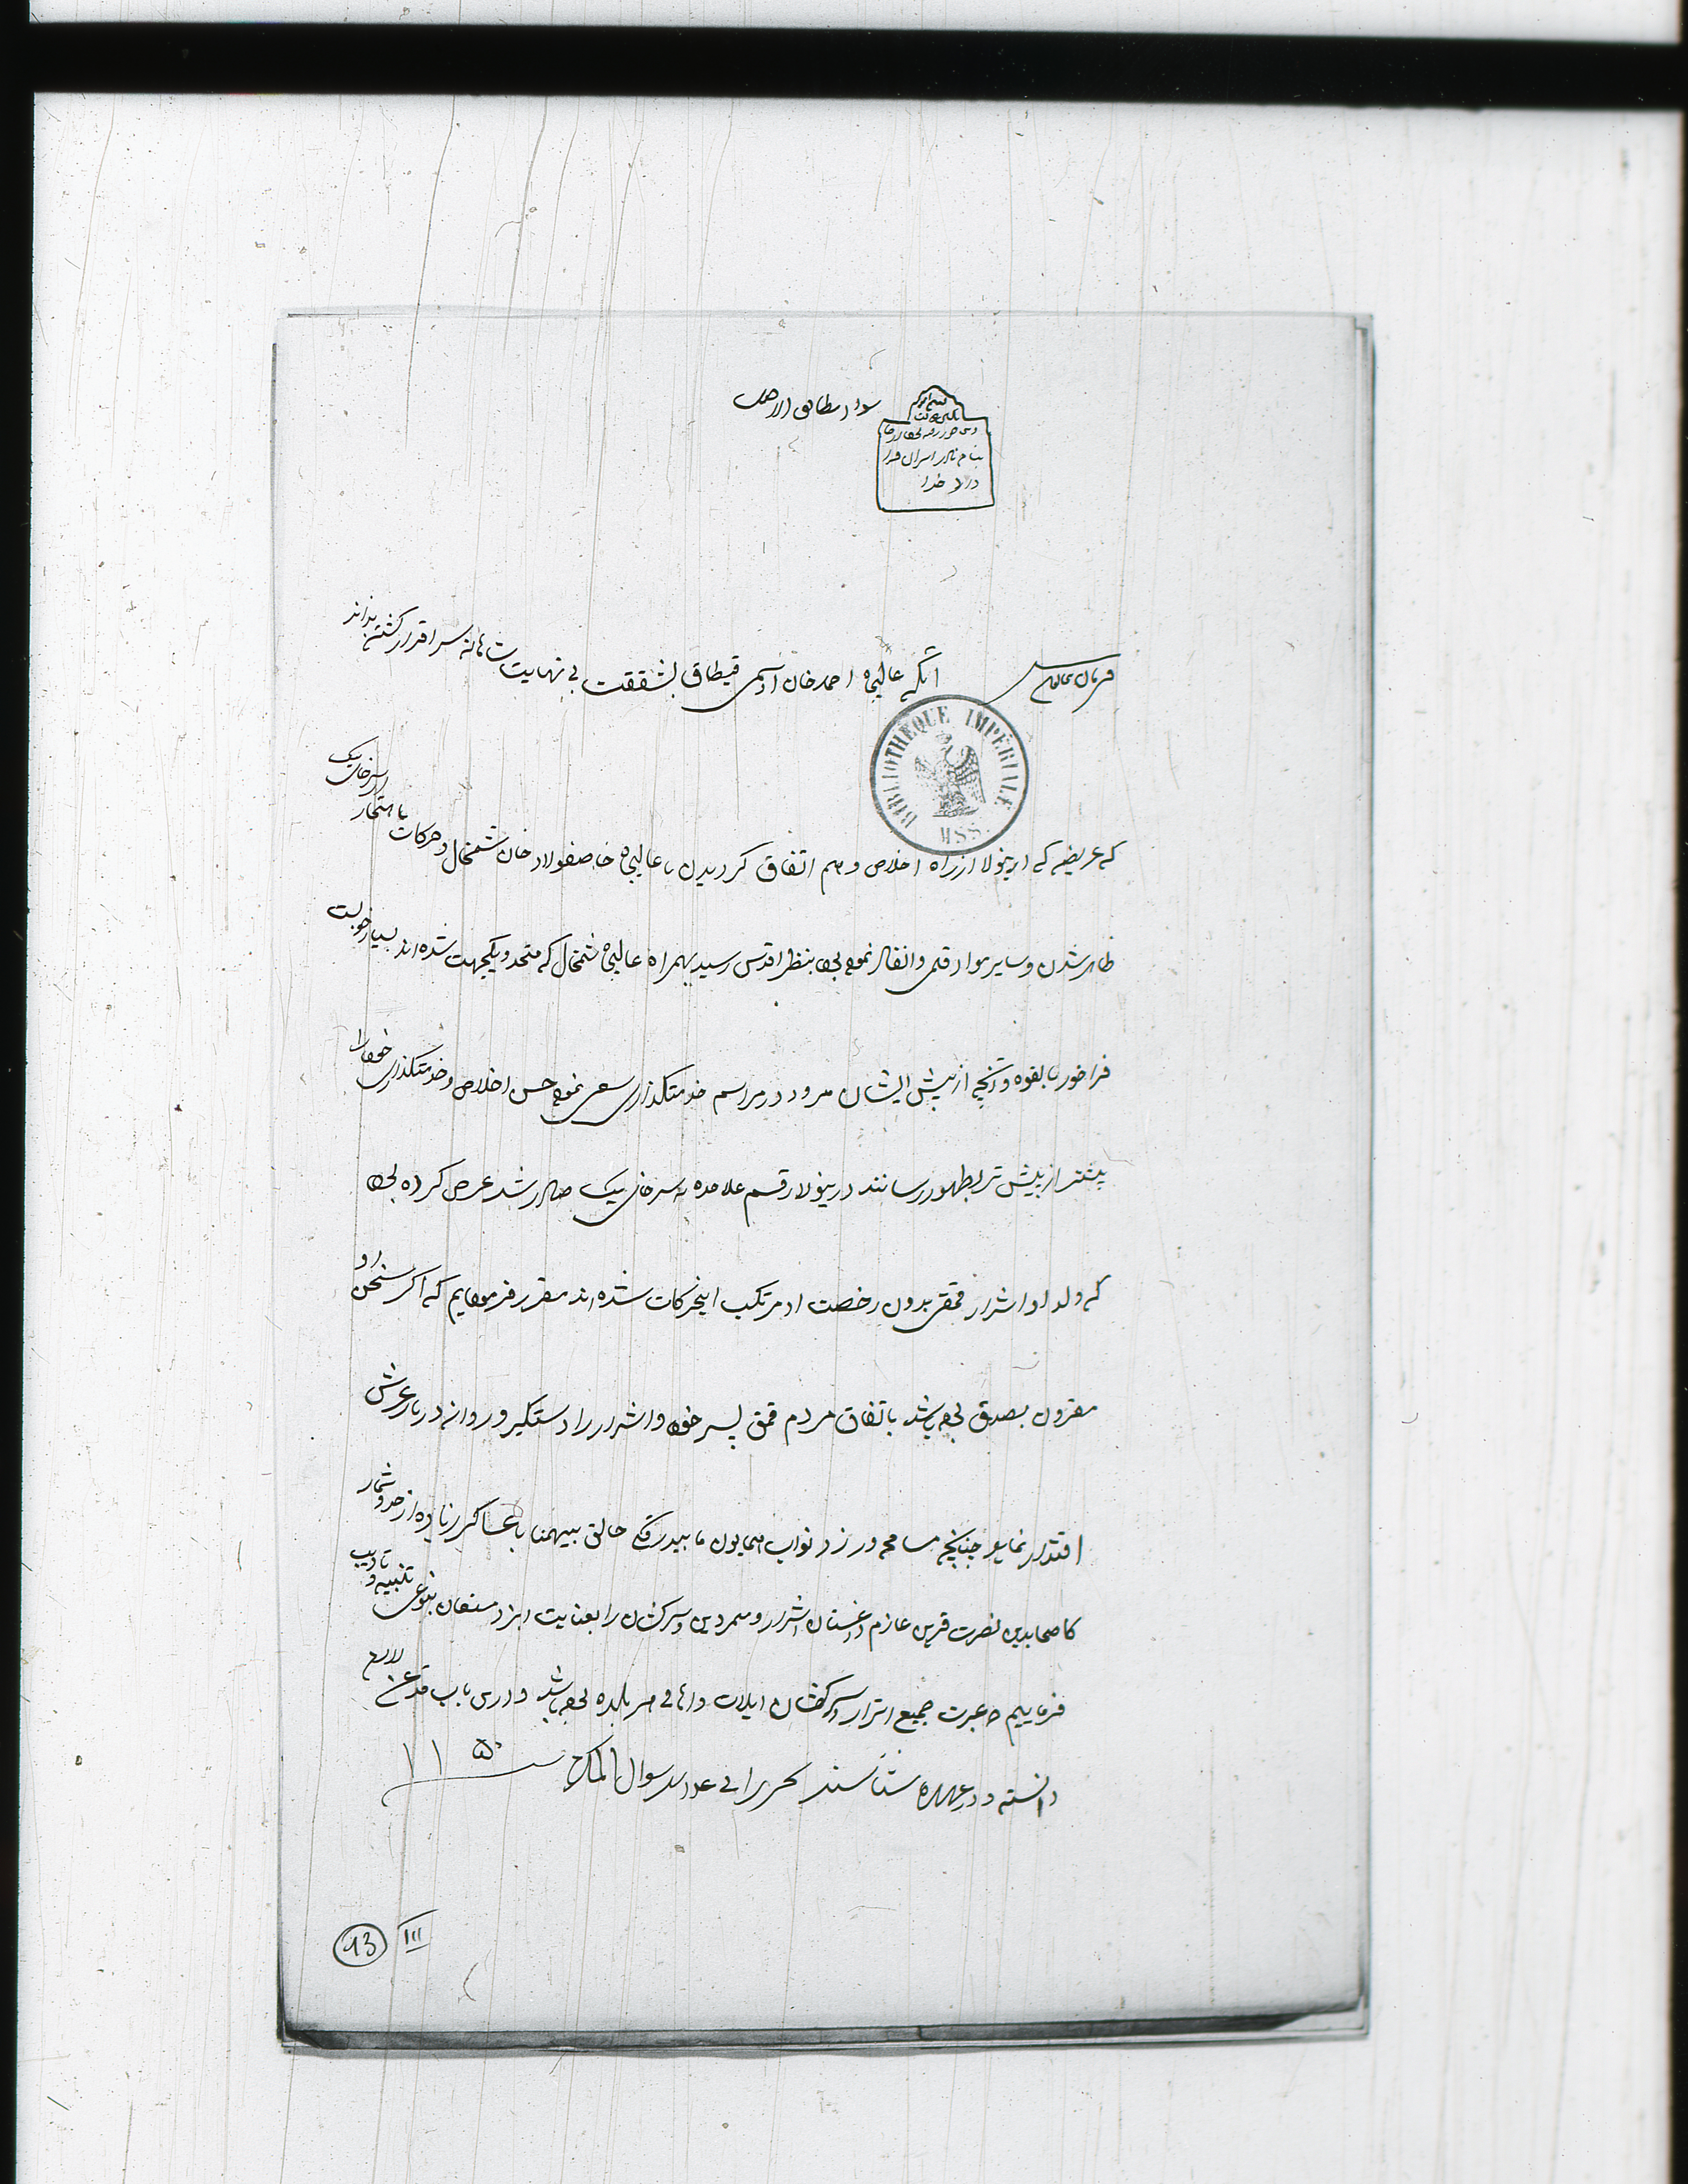 سواد مطابق الاصل
بسم الله
بنام نادر ایران
خدا
فرمان همایون
آنکه عالیجاه احمد خان اوسمی قیطاق بشفقت بی نهایت شاهانه سرافراز گشته بداند
که عریضه که درینولا از راه اخلاص و هم اتفاق گردیدن با عالیجاه خاصفولاد خان شمخال و حرکات ناهنجار سرخای بیک
ظاهر شدن و سایر مواد قلمی و انفاذ نموده بود بنظر اقدس رسید بهمراه عالیجاه شمخال که متحد و یکجهت شده اند بسیار خوبست
فراخور بالقوه و آنچه از پیش ایشان میرود در مراسم خدمتگذاری سعی نموده حسن اخلاص و خدمتگذاری خود را
بیشتر از پیش تر بظهور رسانند درینولا رقم علاحده به سرخای بیک صادر شد عرض کرده بود
که ولد او و اشرار قمق بدون رخصت او مرتکب اینحرکات شده اند مقرر فرمودیم که اگر سخن او
مقرون بصدق بوده باشد باتفاق مردم قمق پسر خود و اشرار را دستگیر و روانه دربار عرش
اقتدار نماید چنانچه مسامحه ورزد نواب همایون ما ببدرقگی خالق بیهمتا با عساکر زیاده از حد و شمار
نصرت قرین عازم داغستان اشرار و متمردین و سرکشان را بعنایت ایزد مستعان بنوعی تنبیه و تادیب
فرماییم که عبرت جمیع اشرار و سرکشان ایلات و اهالی هر بلده بوده باشد و درین باب قدغن لازم
دانسته و در عهده شناسند تحریرا فی شوال المکرم سنه ۱۱۵۰
BIBLIOTHÈQUE IMPÉRIALE
MSS.
13 III